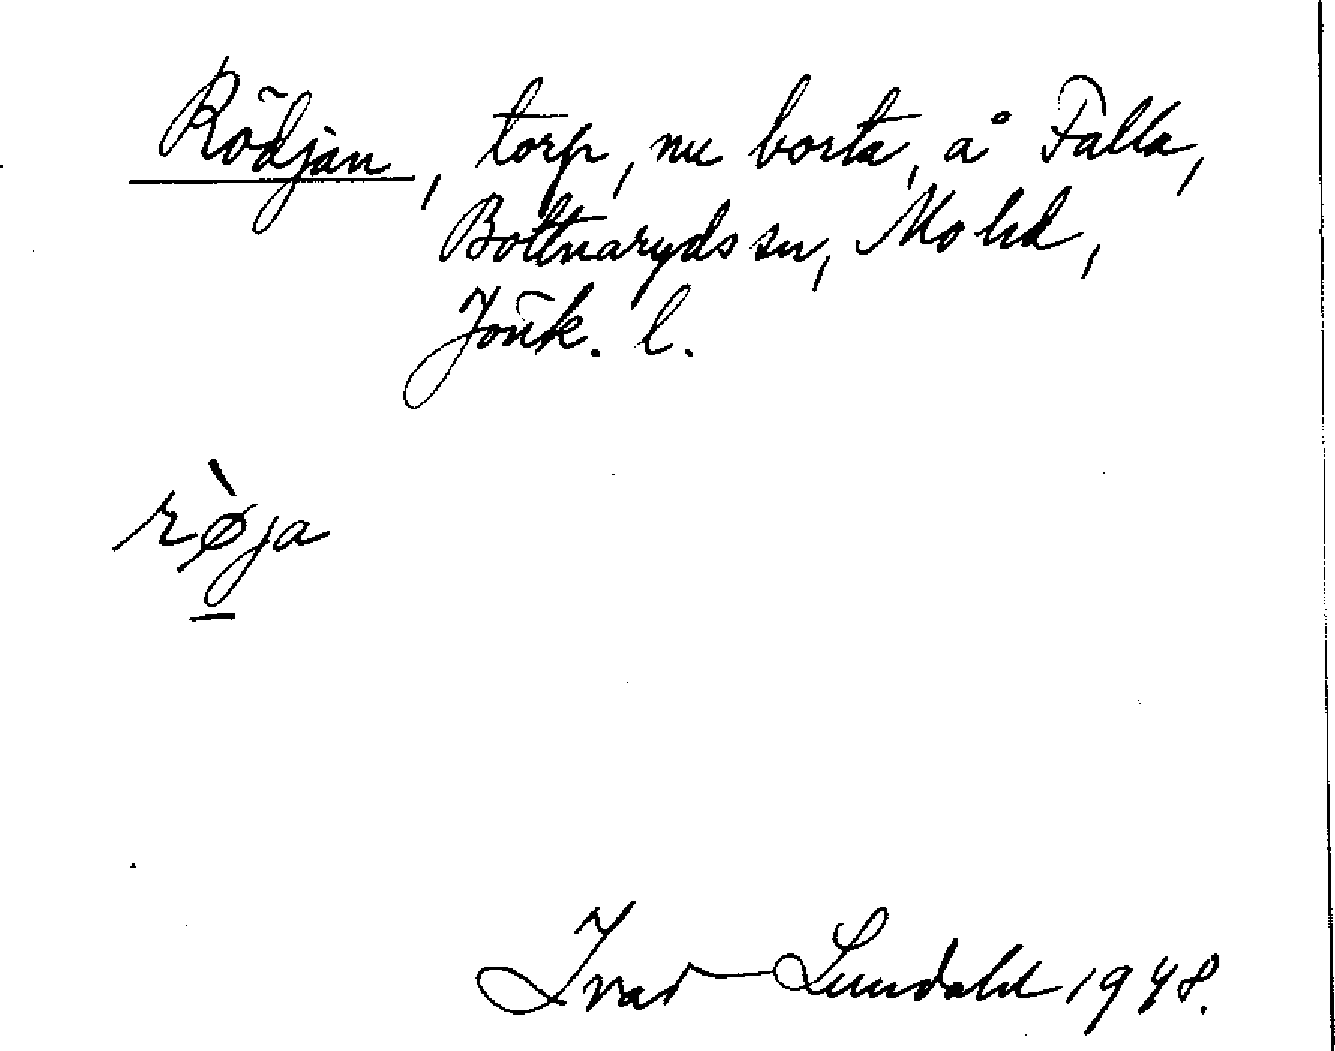 Rödjan, torp, nu borta, å Falla,
Bottnaryds sn, Mo hd,
Jönk. l.
rø̀ja
Ivar Lundahl 1948.